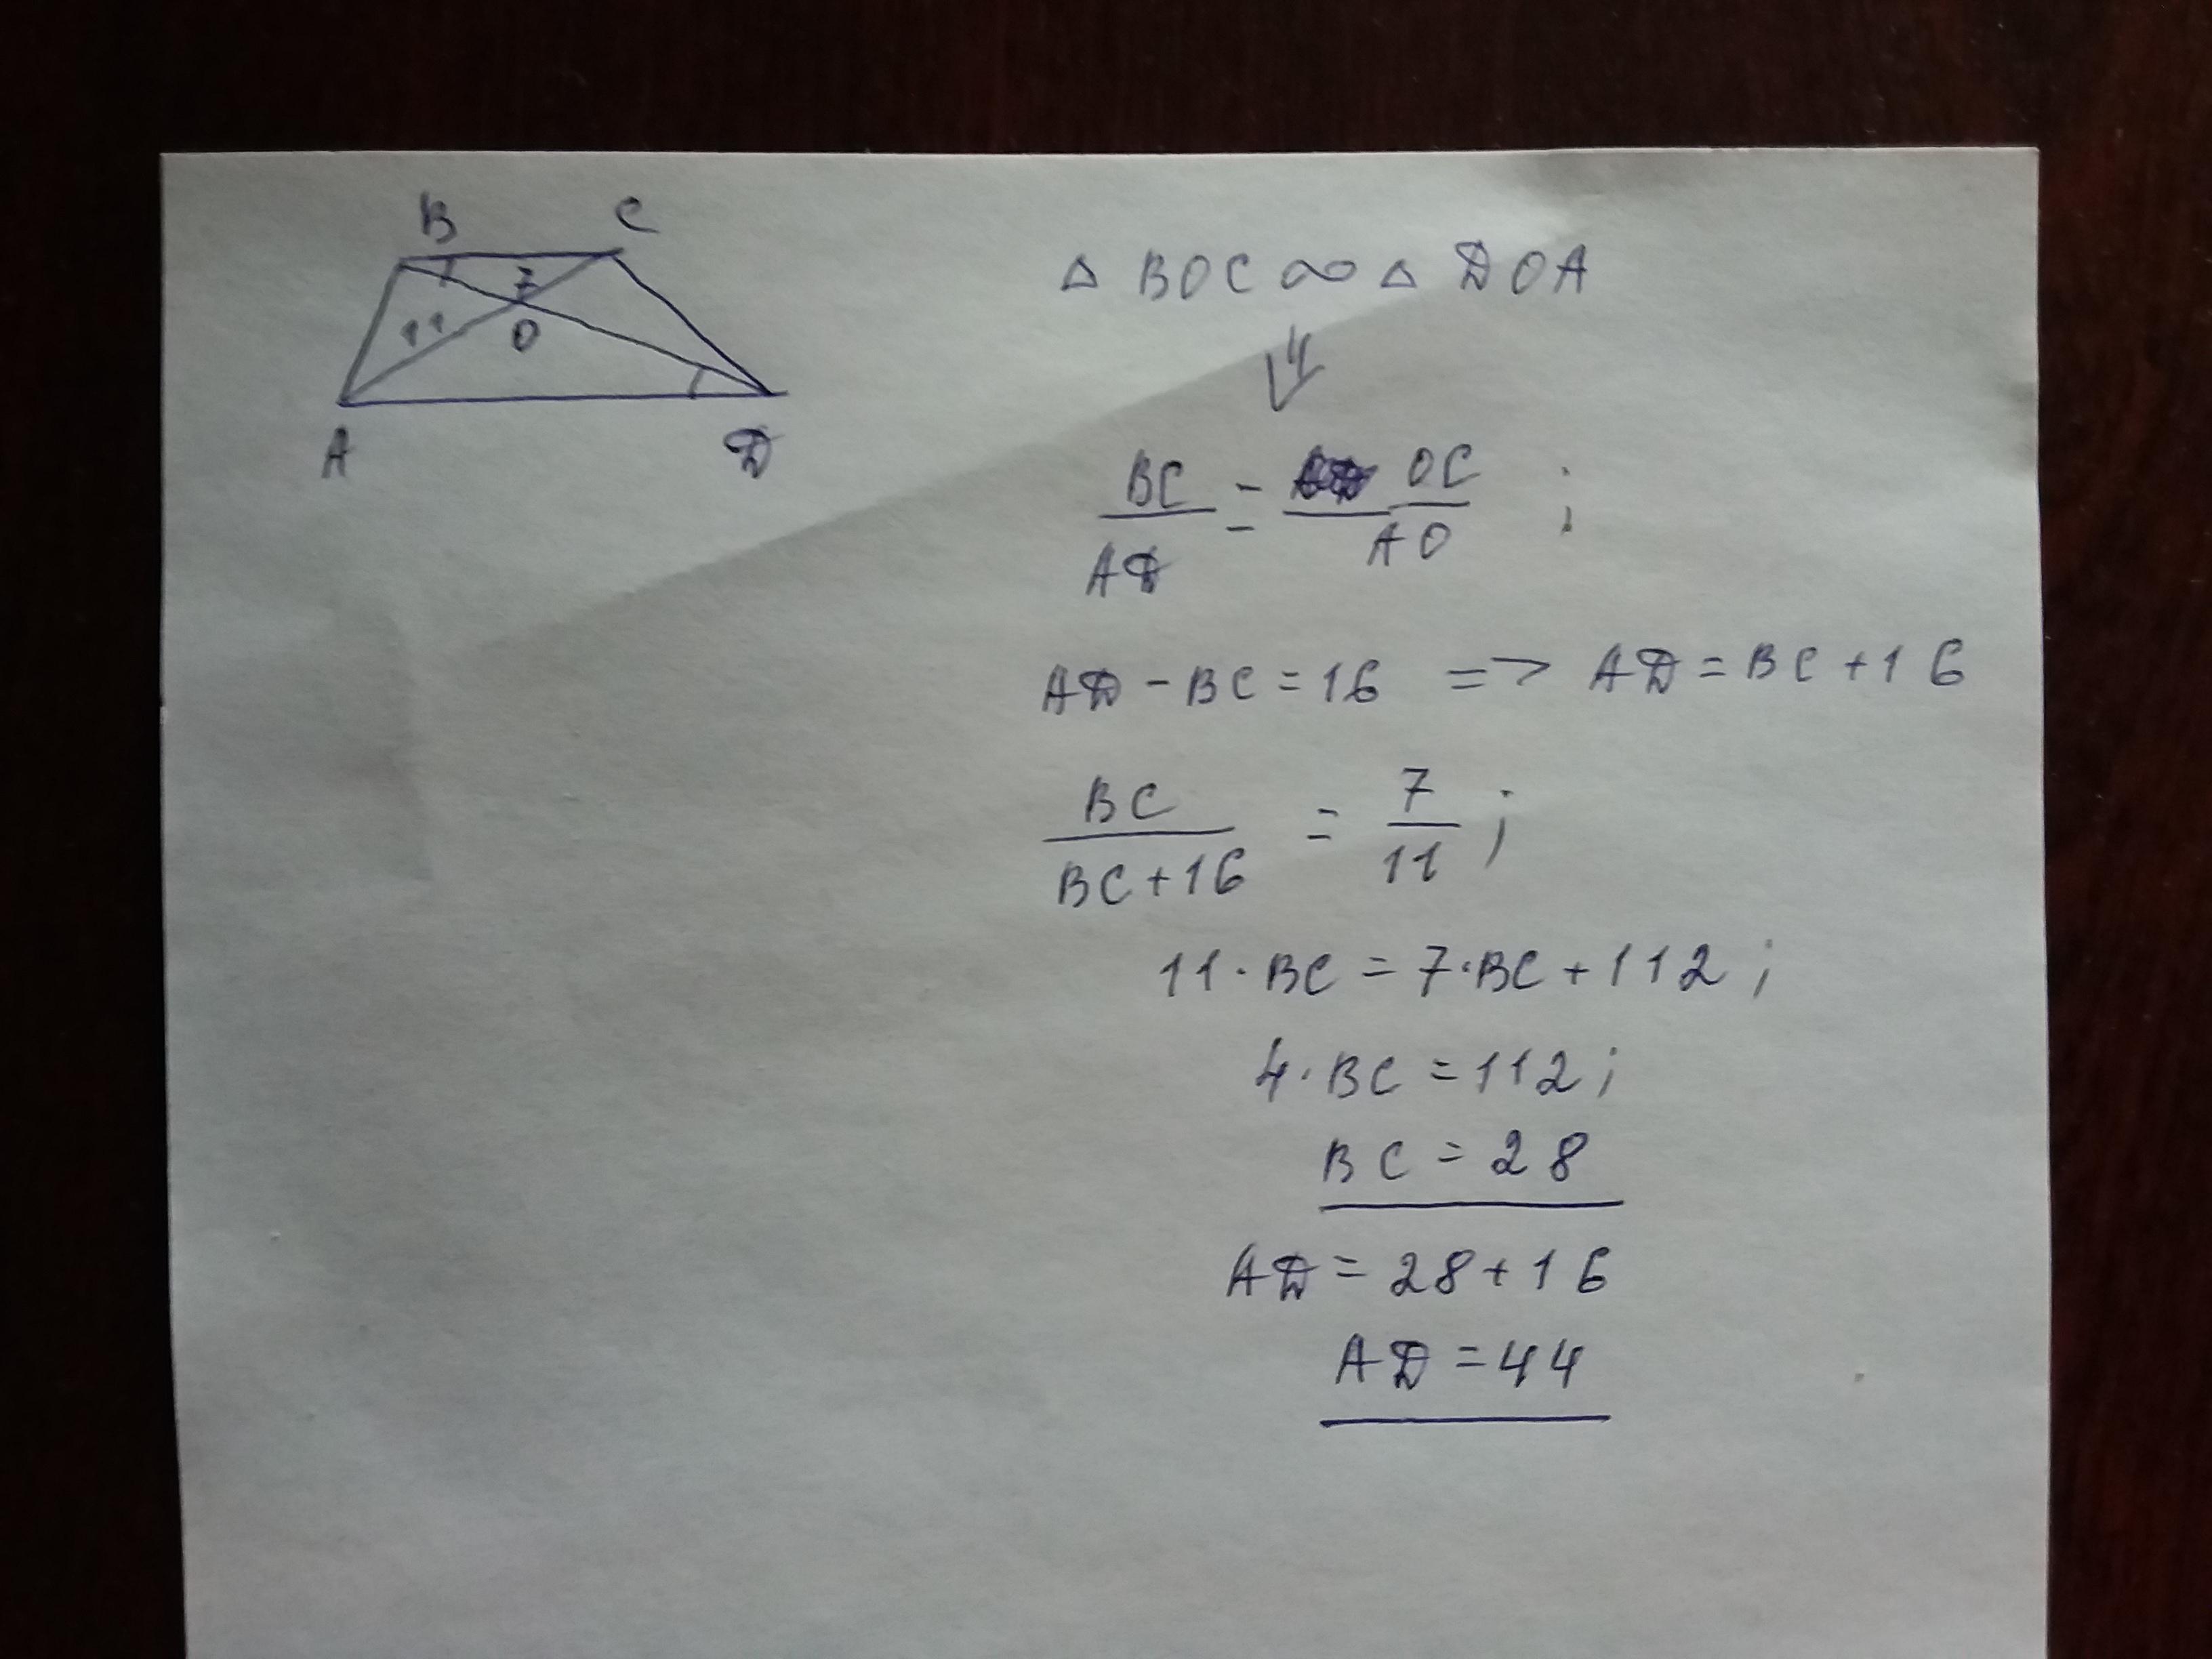 B C
7
11 O
A D
△ BOC ∞ △ DOA
⇓
BC/AD = OC/AO ;
AD - BC = 16 => AD = BC + 16
BC/BC+16 = 7/11 ;
11 · BC = 7 · BC + 112 ;
4 · BC = 112 ;
BC = 28
AD = 28 + 16
AD = 44